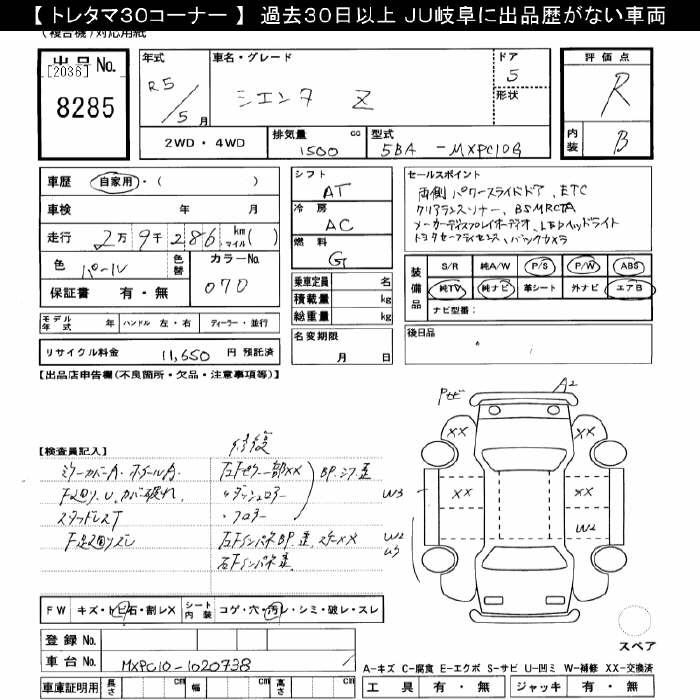 【 トレタマ30コーナー 】 過去30日以上 JU岐阜に出品歴がない車両
(複合機)対応用紙
出品No.
[2036]
8285
年式
R5/5月
車名・グレード
シエンタ Z
ドア
5
形状
評価点
R
内装
B
2WD・4WD
排気量
1500 cc
型式
5BA-MXPC10G
車歴 自家用・( )
車検 年 月
走行 2万9千286 km マイル( )
色 パール
色替
カラーNo.
070
保証書 有・無
シフト
AT
冷房
AC
燃料
G
乗車定員 名
積載量 kg
総重量 kg
セールスポイント
両側パワースライドドア、ETC
クリアランスソナー、BSM RCTA
メーカーディスプレイオーディオ、LEDヘッドライト
トヨタセーフティセンス、バックカメラ
装備品
S/R 純A/W P/S P/W ABS
純TV 純ナビ 革シート 外ナビ エアB
ナビ型番:
モデル年式 年 ハンドル 左・右 ディーラー・並行
リサイクル料金 11,650 円 預託済
名変期限
月 日
後日品
【出品店申告欄(不良箇所・欠品・注意事項等)】
【検査員記入】
修復
ミラーカバーA.
F廻りU.カバー破れ
スタッドレスT
F足廻りズレ
右Fピラー一部XX
〃ダッシュロアー
〃フロアー
BP.シワ歪
右FインパネBP.歪.ステーXX
右Fインパネ歪
A2
XX
XX
XX
XX
W3
W2
W2
FW キズ・トビ石・割レX
シート内装 コゲ・穴・汚レ・シミ・破レ・スレ
登録No.
車台No. MXPC10-1020738
スペア
A-キズ C-腐食 E-エクボ S-サビ U-凹ミ W-補修 XX-交換済
車庫証明用 長さ cm 幅 cm 高さ cm
工具 有・無 ジャッキ 有・無